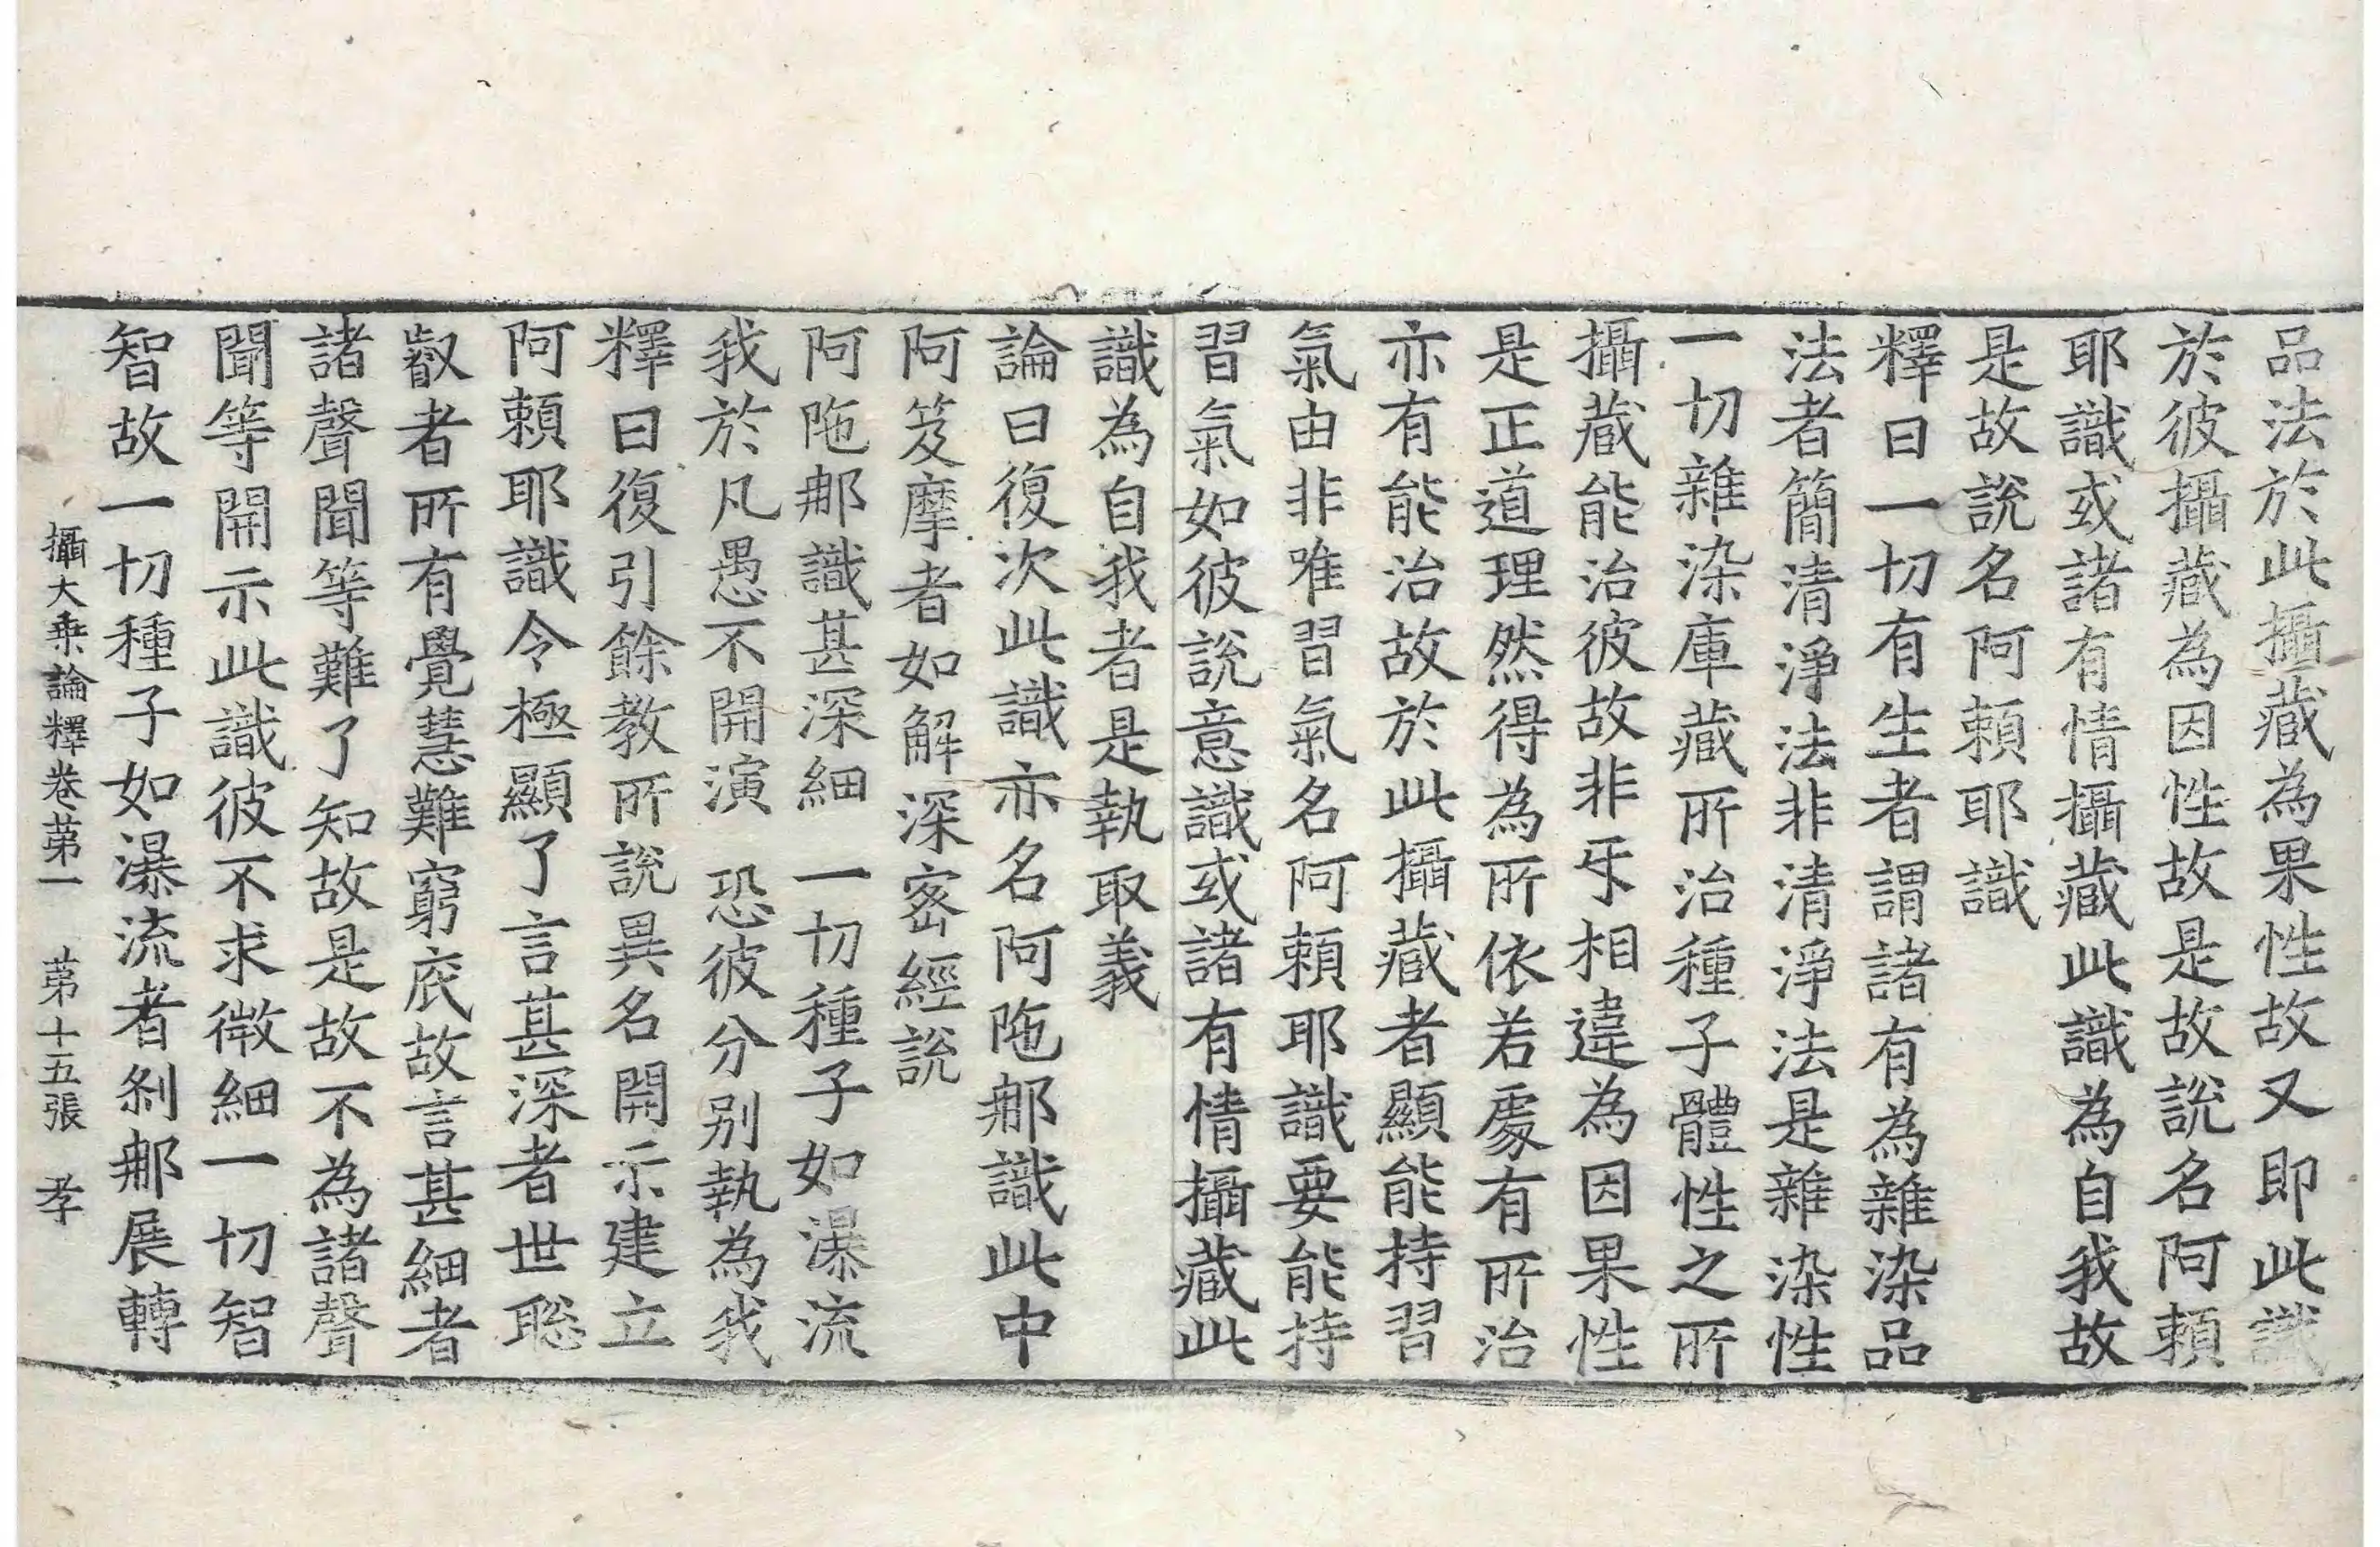 品法於此攝藏為果性故又即此識
於彼攝藏為因性故是故說名阿賴
耶識或諸有情攝藏此識為自我故
是故說名阿賴耶識
釋曰一切有生者謂諸有為雜染品
法者簡清淨法非清淨法是雜染性
一切雜染庫藏所治種子體性之所
攝藏能治彼故非㸦相違為因果性
是正道理然得為所依若處有所治
亦有能治故於此攝藏者顯能持習
氣由非唯習氣名阿賴耶識要能持
習氣如彼說意識或諸有情攝藏此
識為自我者是執取義
論曰復次此識亦名阿陁那識此中
阿笈摩者如解深密經說
阿陁那識甚深細　一切種子如瀑流
我於凡愚不開演　恐彼分別執為我
釋曰復引餘教所說異名開示建立
阿賴耶識令極顯了言甚深者世聡
叡者所有覺慧難窮底故言甚細者
諸聲聞等難了知故是故不為諸聲
聞等開示此識彼不求微細一切智
智故一切種子如瀑流者剎那展轉
攝大乗論釋卷苐一　苐十五張　孝